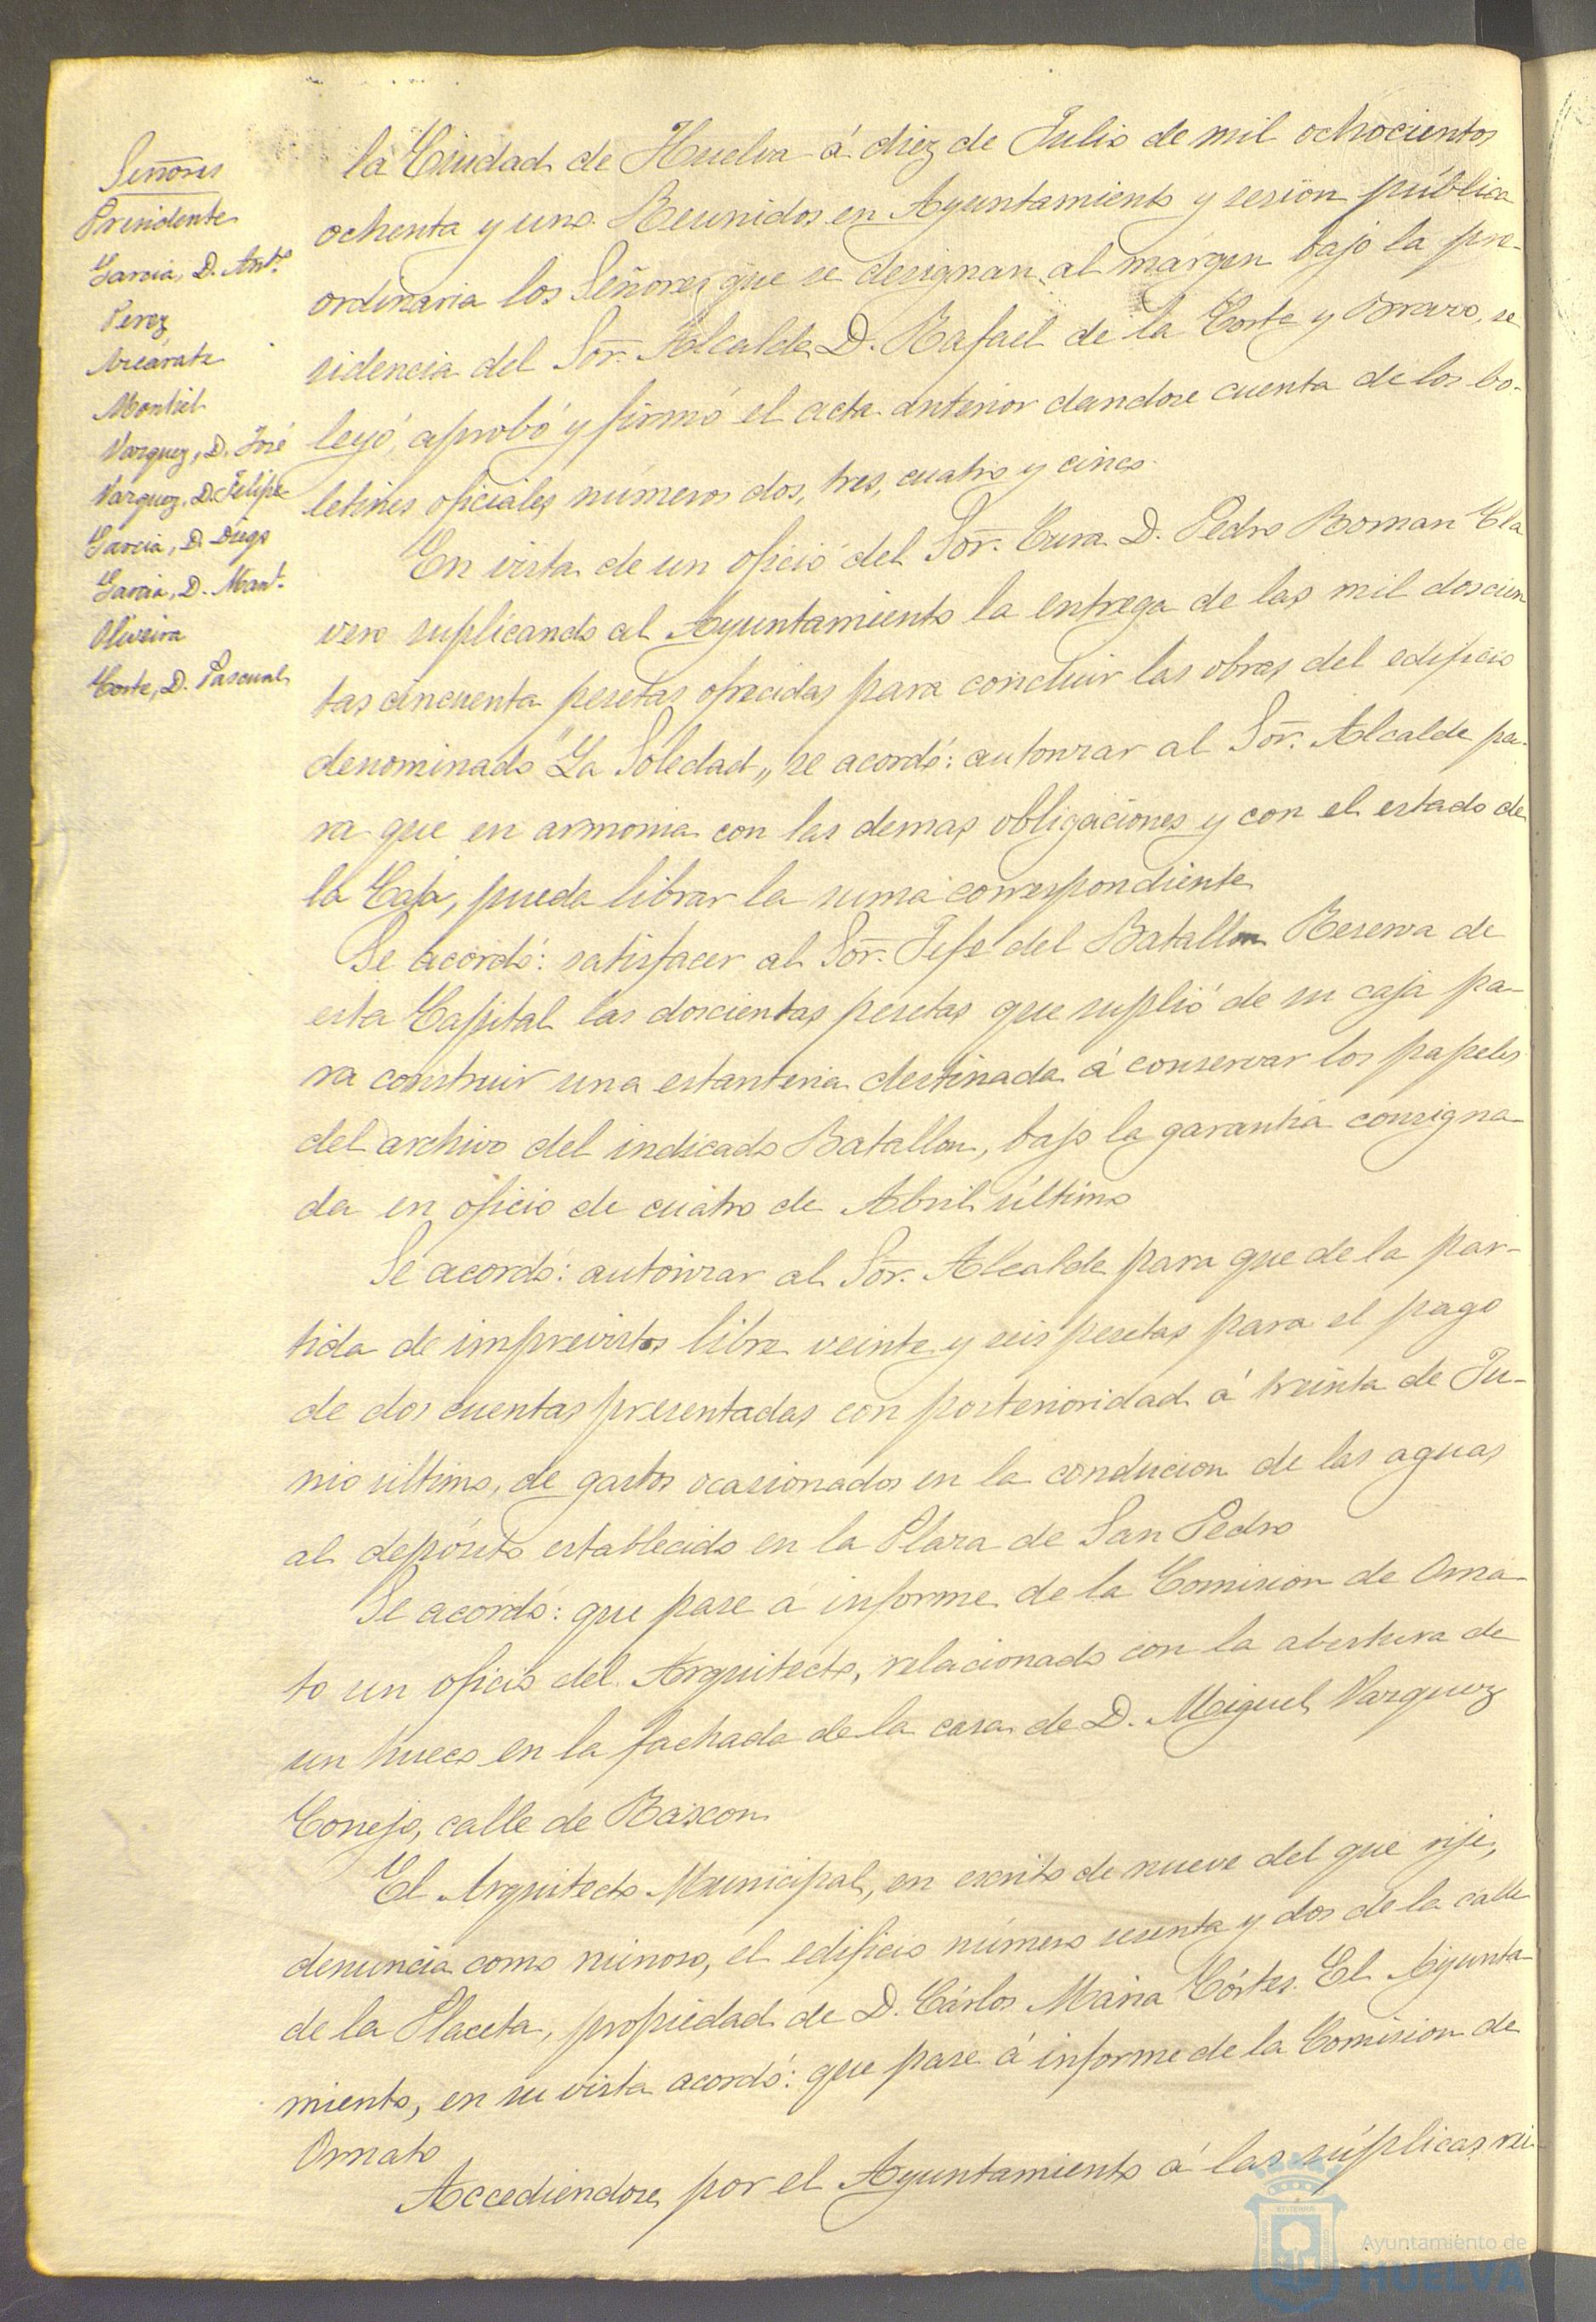 Señores
Presidente
Garcia, D. Antº
Perez
Azcárate
Montiel
Vazquez, D. José
Vazquez, D. Felipe
Garcia, D. Diego
Garcia, D. Manl.
Oliveira
Corte, D. Pascual
la Ciudad de Huelva á diez de Julio de mil ochocientos
ochenta y uno. Reunidos en Ayuntamiento y sesion pública
ordinaria los Señores que se designan al márgen bajo la pre-
sidencia del Sor. Alcalde D. Rafael de la Corte y Bravo, se
leyó, aprobó y firmó el acta anterior dandose cuenta de los bo-
letines oficiales números dos, tres, cuatro y cinco.
En vista de un oficio del Sor. Cura D. Pedro Roman Cla
vero suplicando al Ayuntamiento la entrega de las mil doscien
tas cincuenta pesetas ofrecidas para concluir las obras del edificio
denominado "La Soledad„ se acordó: autorizar al Sor. Alcalde pa-
ra que en armonia con las demas obligaciones y con el estado de
la Caja, pueda librar la suma correspondiente
Se acordó: satisfacer al Sor. Jefe del Batallon Reserva de
esta Capital las doscientas pesetas que suplió de su caja pa-
ra construir una estanteria destinada á conservar los papeles
del archivo del indicado Batallon, bajo la garantia consigna-
da en oficio de cuatro de Abril último
Se acordó: autorizar al Sor. Alcalde para que de la par-
tida de imprevistos libre veinte y seis pesetas para el pago
de dos cuentas presentadas con posterioridad á treinta de Ju-
nio ultimo, de gastos ocasionados en la conducion de las aguas
al depósito establecido en la Plaza de San Pedro
Se acordó: que pase á informe de la Comision de Orna-
to un oficio del Arquitecto, relacionado con la abertura de
un hueco en la fachada de la casa de D. Miguel Vazquez
Conejo, calle de Rascon
El Arquitecto Municipal, en escrito de nueve del que rije,
denuncia como ruinoso, el edificio número sesenta y dos de la calle
de la Placeta, propiedad de D. Cárlos Maria Córtes. El Ayunta-
miento, en su vista acordó: que pase á informe de la Comision de
Ornato
Accediendose por el Ayuntamiento á las súplicas rei-
Ayuntamiento de
HUELVA